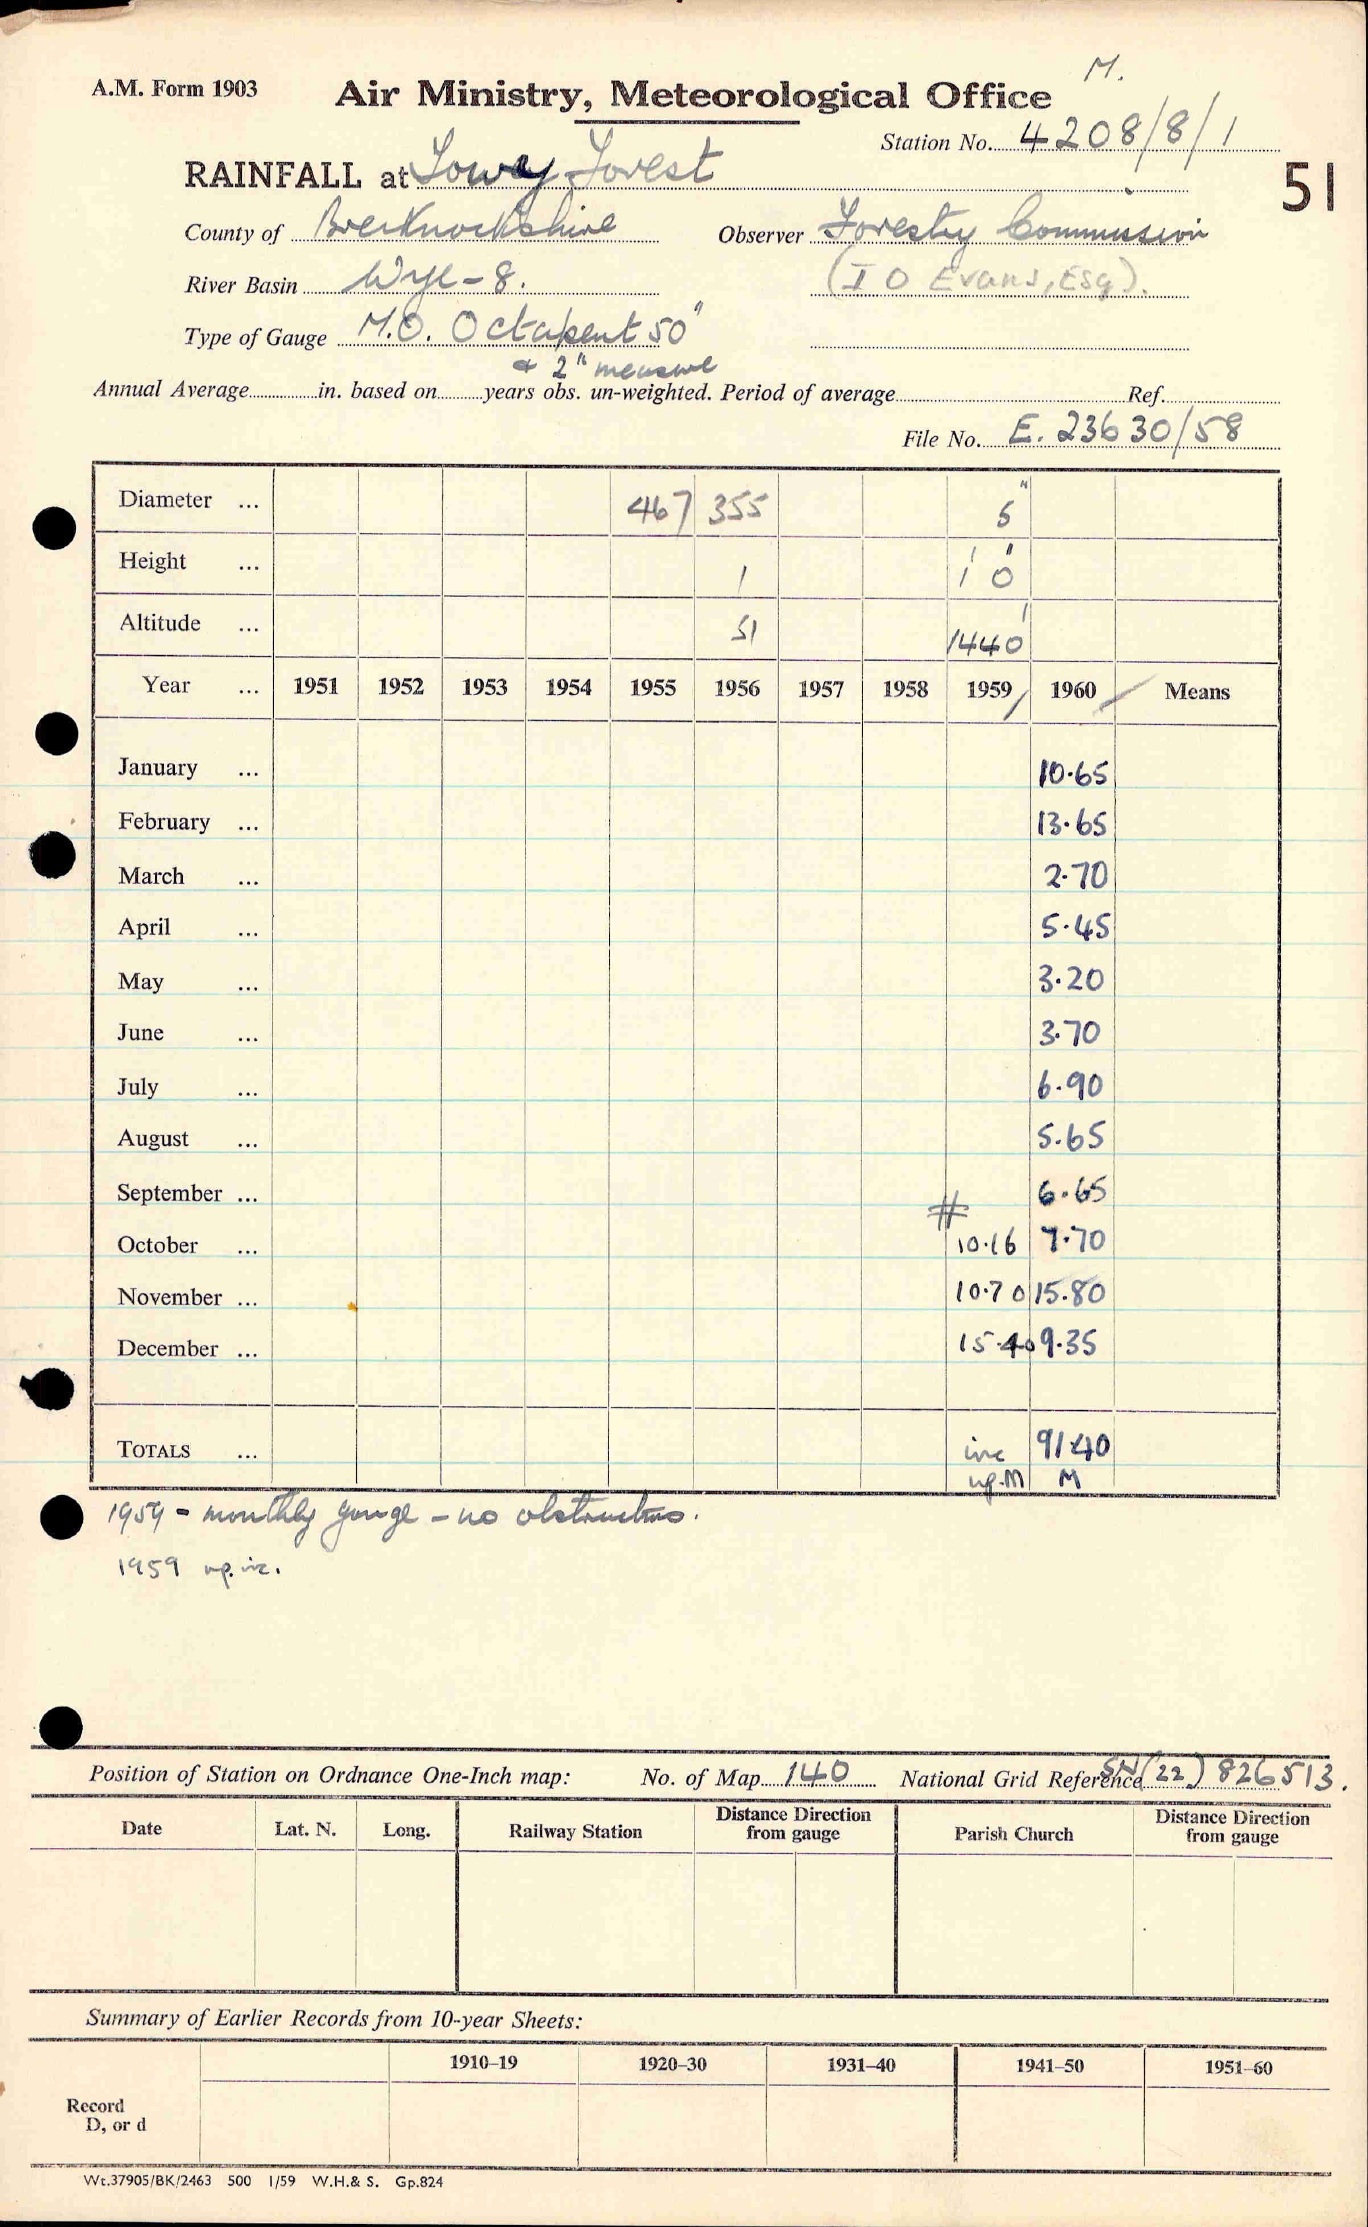 M.
A.M. Form 1903
Air Ministry, Meteorological Office
Station No. 4208/8/1
RAINFALL at Towy Forest
51
County of Brecknockshire Observer Forestry Commission
River Basin Wye-8. (I O Evans, Esq).
Type of Gauge M.O. Octapent 50"
& 2" measure
Annual Average in. based on years obs. un-weighted. Period of average Ref.
File No. E. 23630/58
Diameter ... 467 355 5"
Height ... 1 1' 0"
Altitude ... 51 1440'
Year ... 1951 1952 1953 1954 1955 1956 1957 1958 1959/ 1960 / Means
January ... 10.65
February ... 13.65
March ... 2.70
April ... 5.45
May ... 3.20
June ... 3.70
July ... 6.90
August ... 5.65
September ... 6.65
#
October ... 10.16 7.70
November ... 10.70 15.80
December ... 15.40 9.35
TOTALS ... inc 91.40
up.M M
1959 - monthly gauge - no obstructions.
1959 up. inc.
Position of Station on Ordnance One-Inch map: No. of Map 140 National Grid Reference SN (22) 826513.
Date Lat. N. Long. Railway Station Distance Direction from gauge Parish Church Distance Direction from gauge
Summary of Earlier Records from 10-year Sheets:
1910–19 1920–30 1931–40 1941–50 1951–60
Record
D, or d
Wt.37905/BK/2463 500 1/59 W.H.& S. Gp.824